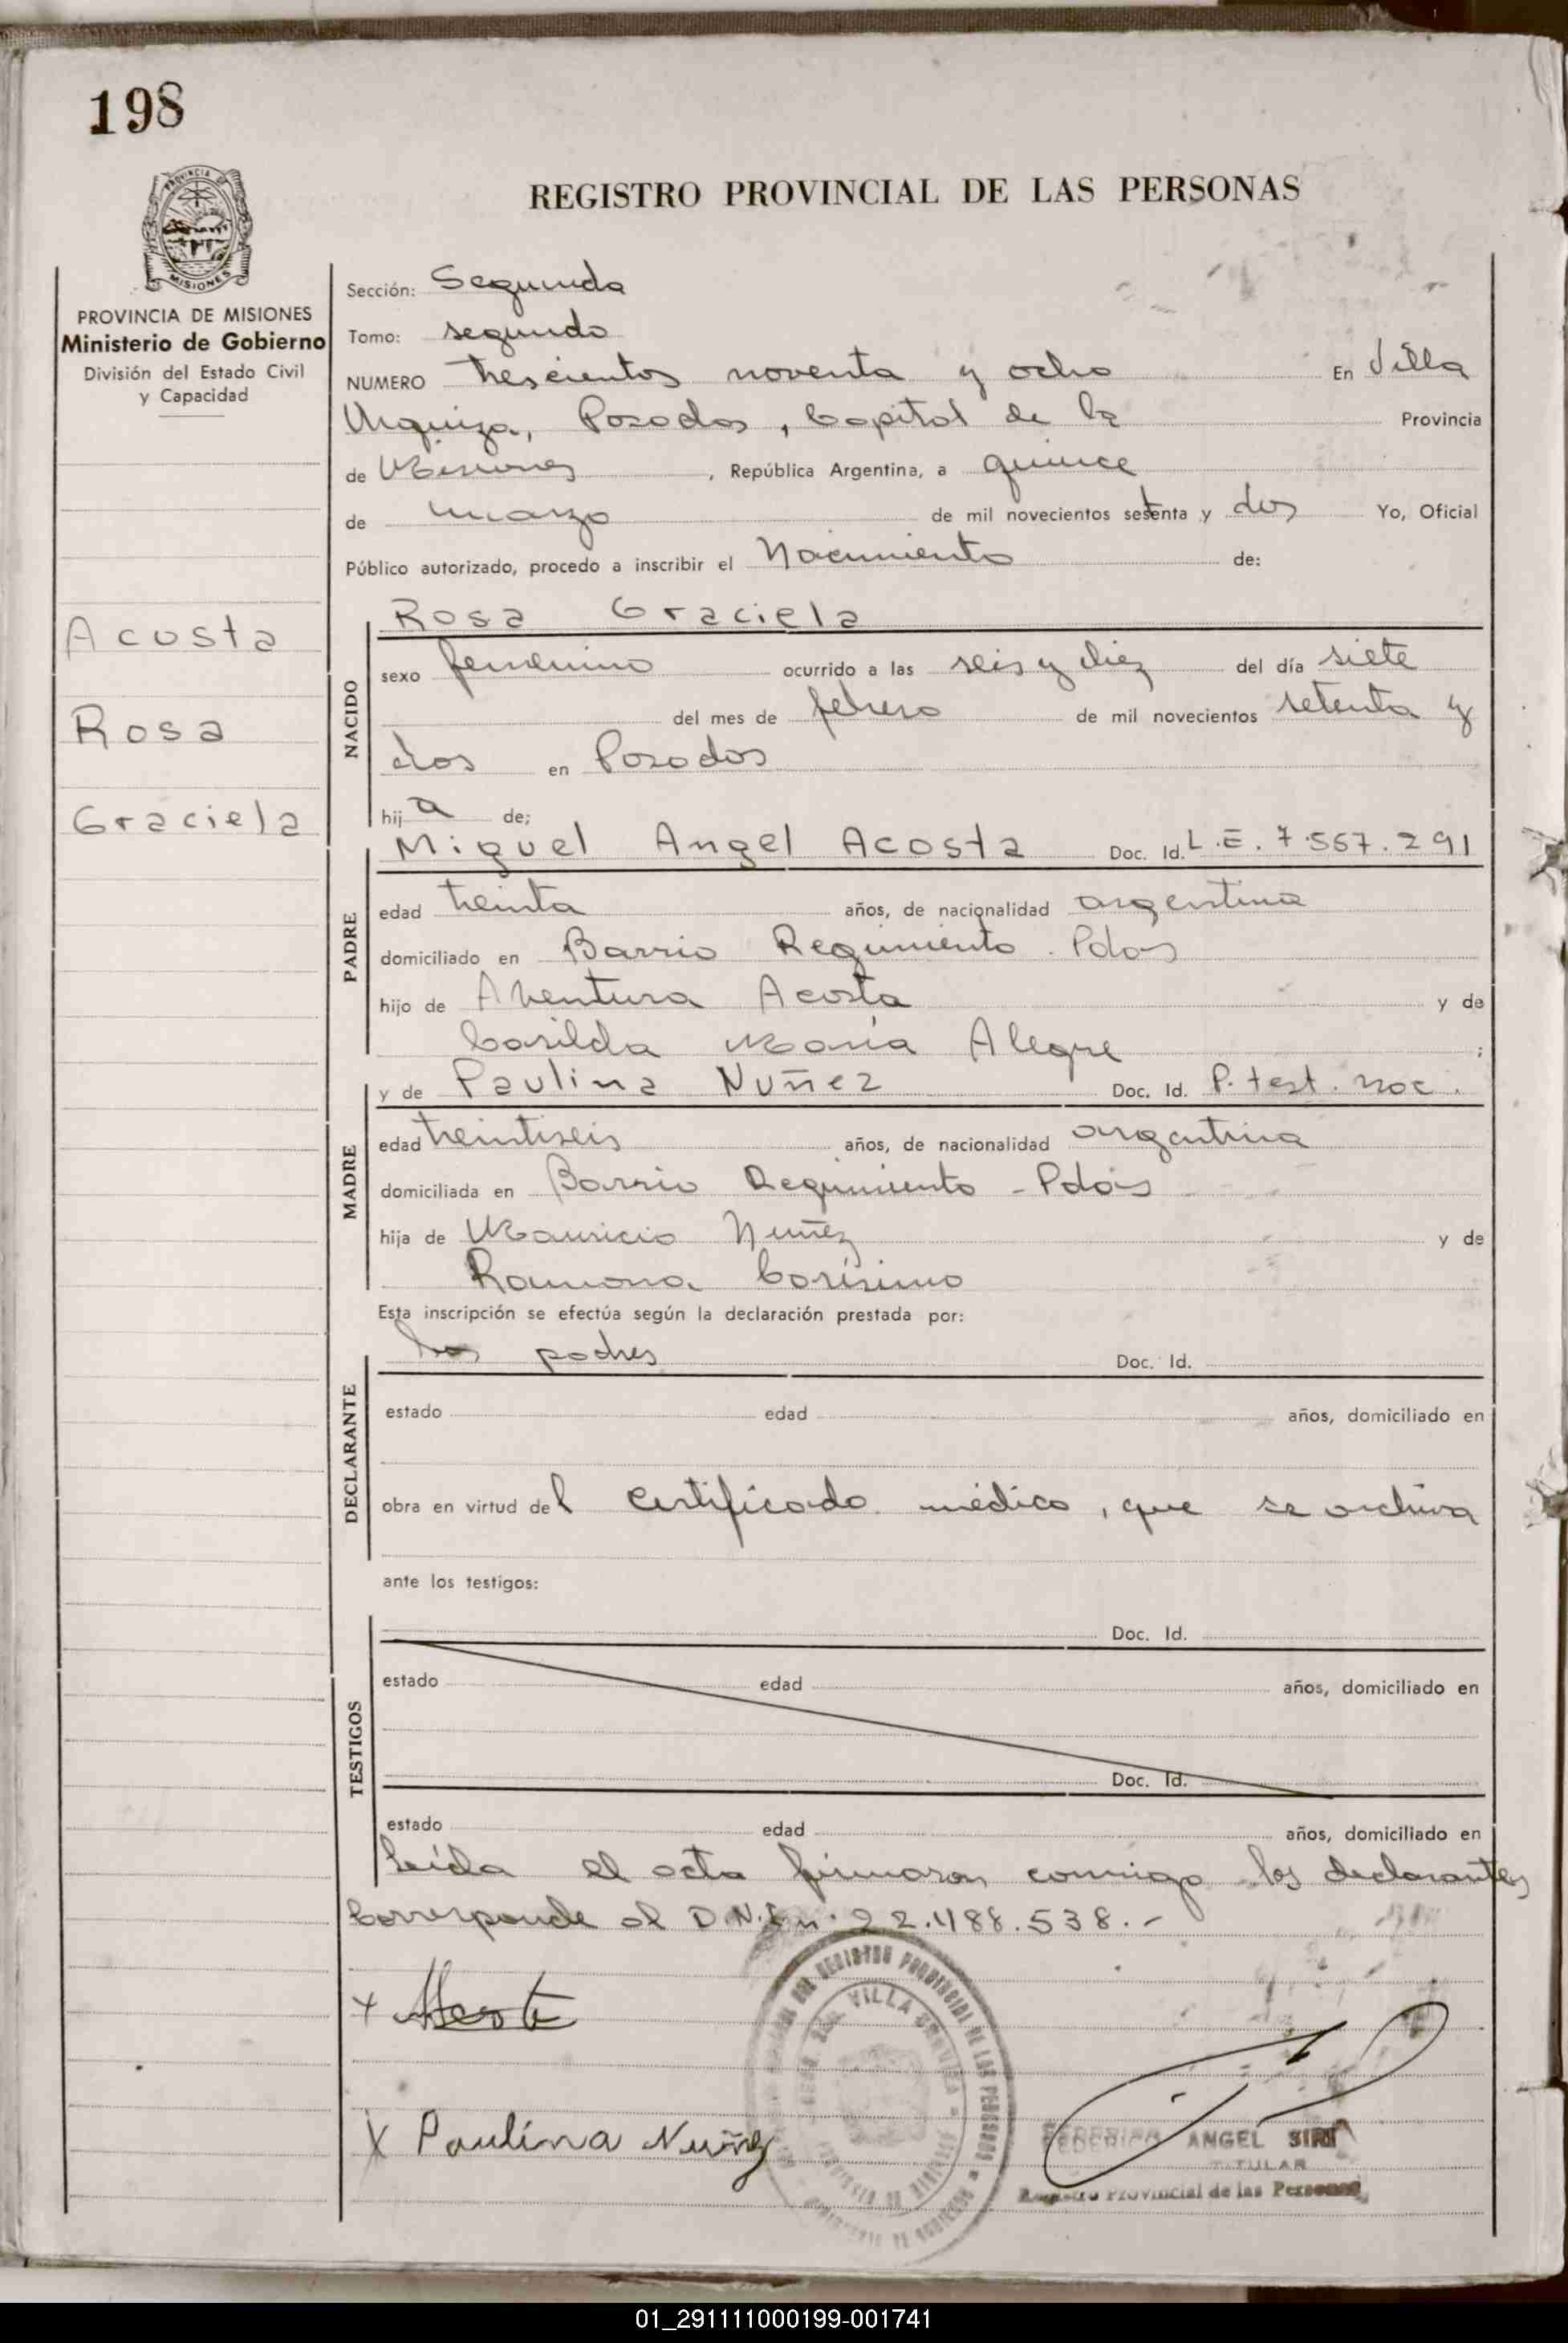 198
PROVINCIA DE
MISIONES
REGISTRO PROVINCIAL DE LAS PERSONAS
PROVINCIA DE MISIONES
Ministerio de Gobierno
División del Estado Civil
y Capacidad
Acosta
Rosa
Graciela
Sección: Segunda
Tomo: segundo
NUMERO trescientos noventa y ocho En Villa
Urquiza, Posadas, Capital de la Provincia
de Misiones, República Argentina, a quince
de marzo de mil novecientos setenta y dos Yo, Oficial
Público autorizado, procedo a inscribir el Nacimiento de:
NACIDO
Rosa Graciela
sexo femenino ocurrido a las seis y diez del día siete
del mes de febrero de mil novecientos setenta y
dos en Posadas
hija de;
PADRE
Miguel Angel Acosta Doc. Id. L.E. 7.557.291
edad treinta años, de nacionalidad argentina
domiciliado en Barrio Regimiento. Pdas
hijo de Aventura Acosta y de
Casilda María Alegre ;
MADRE
y de Paulina Nuñez Doc. Id. P. test. noc.
edad treintiseis años, de nacionalidad argentina
domiciliada en Barrio Regimiento - Pdas
hija de Mauricio Nuñez y de
Ramona Carísimo
Esta inscripción se efectúa según la declaración prestada por:
DECLARANTE
los padres Doc. Id.
estado edad años, domiciliado en
obra en virtud del certificado médico, que se archiva
ante los testigos:
TESTIGOS
Doc. Id.
estado edad años, domiciliado en
Doc. Id.
estado edad años, domiciliado en
Leída el acta firmaron conmigo los declarantes
Corresponde al D.N.I n. 22.488.538.-
x Acosta
x Paulina Nuñez
REGISTRO PROVINCIAL DE LAS PERSONAS
VILLA URQUIZA
FEDERICO ANGEL SIRI
TITULAR
Registro Provincial de las Personas
01_291111000199-001741